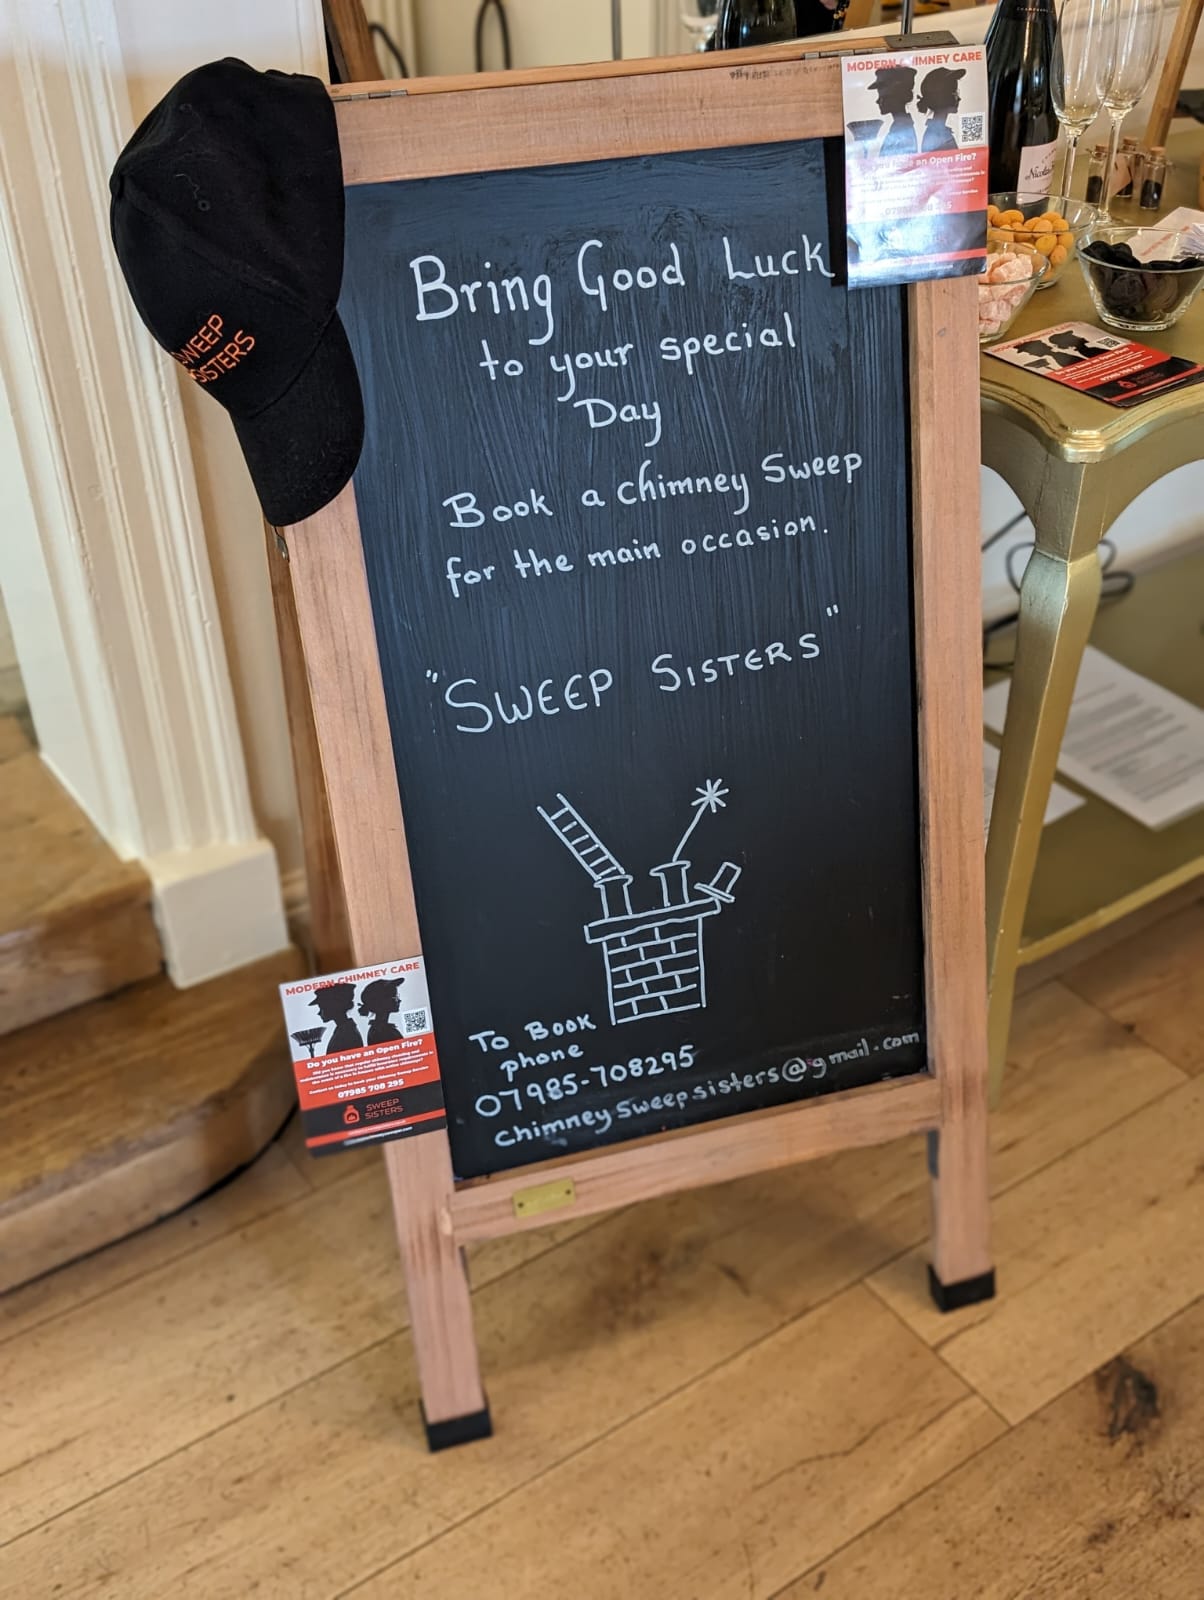 Bring Good Luck
to your special
Day
Book a chimney Sweep
for the main occasion.
"SWEEP SISTERS"
To Book
phone
07985-708295
chimneysweepsisters@gmail.com
SWEEP
SISTERS
MODERN CHIMNEY CARE
an Open Fire?
MODERN CHIMNEY CARE
Do you have an Open Fire?
Did you know that regular chimney cleaning and
07985 708 295
SWEEP
SISTERS
07985 708 295
SWEEP
SISTERS